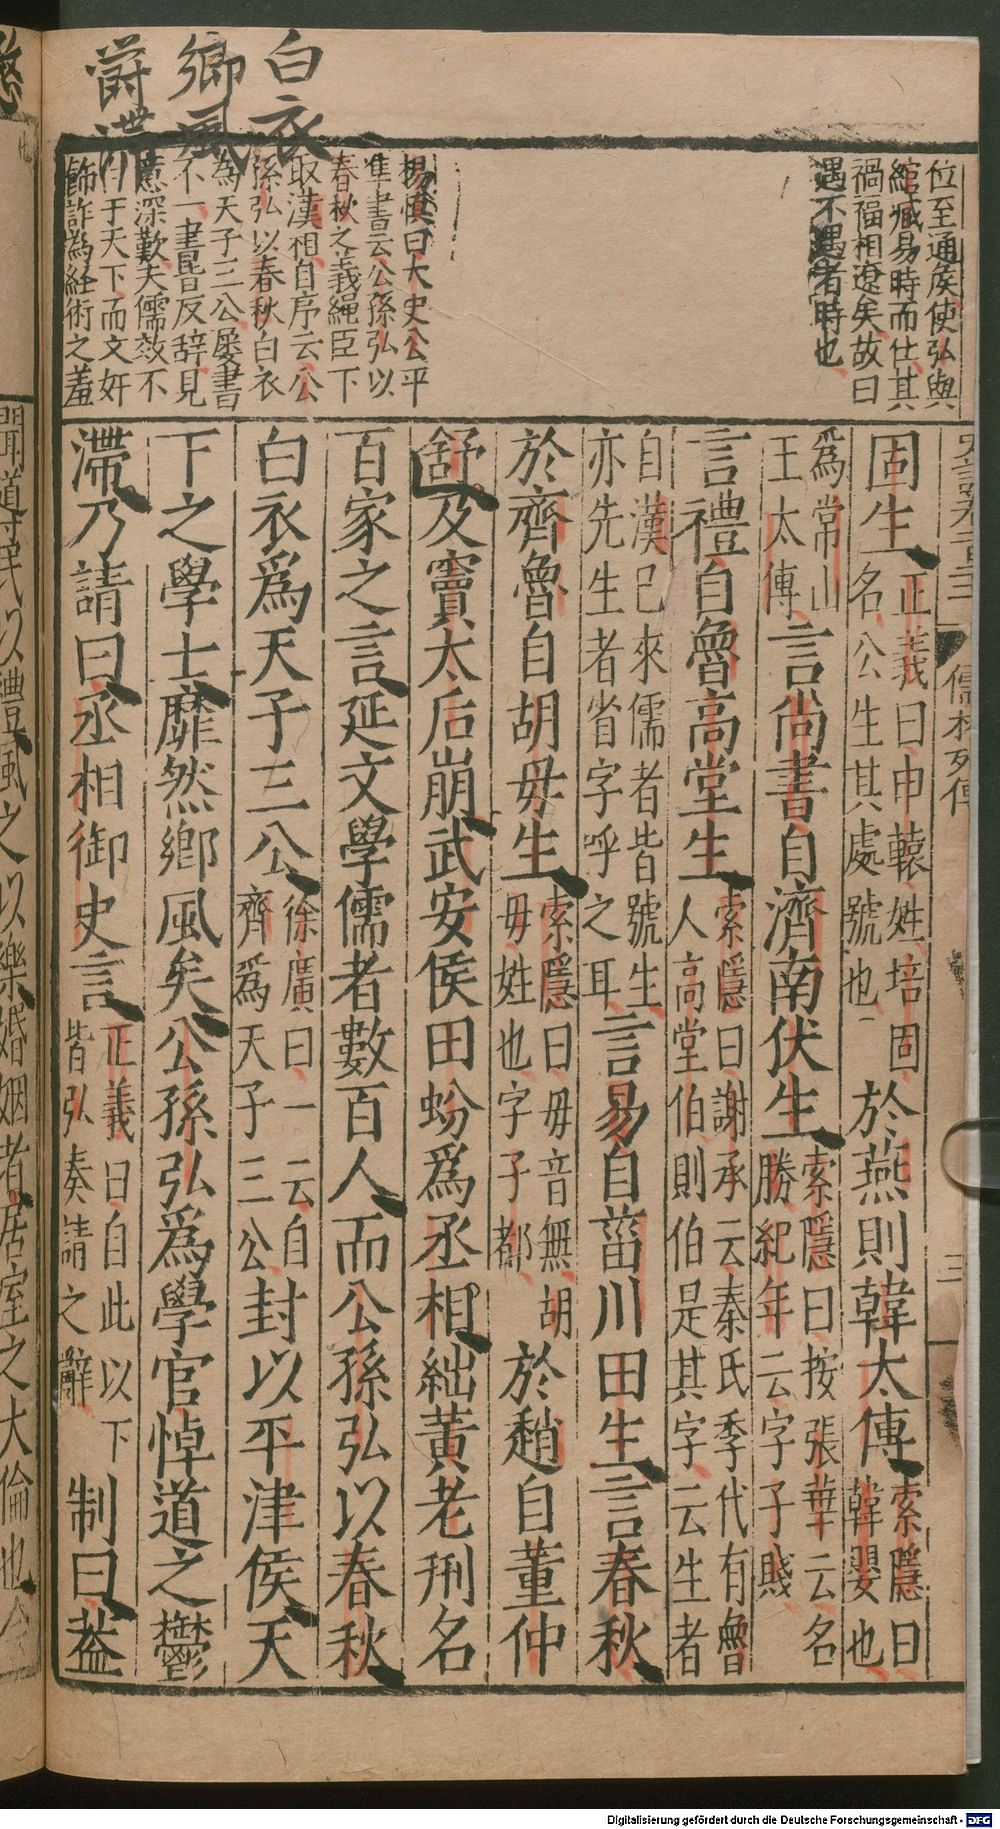 白衣
鄉風
位至通侯使弘與
綰臧易時而仕其
禍福相遼矣故曰
遇不遇者時也
楊慎曰太史公平
準書云公孫弘以
春秋之義繩臣下
取漢相自序云公
孫弘以春秋白衣
為天子三公屢書
不一書皆反辭見
意深歎夫儒效不
白于天下而文奸
飾詐為経術之羞
儒林列傳
三
固生正義曰申轅姓培固
名公生其處號也於燕則韓太傅索隱曰
韓嬰也
為常山
王太傅言尚書自濟南伏生索隱曰按張華云名
勝紀年云字子賤
言禮自魯高堂生索隱曰謝承云秦氏季代有魯
人高堂伯則伯是其字云生者
自漢已來儒者皆號生
亦先生者省字呼之耳言易自菑川田生言春秋
於齊魯自胡毋生索隱曰毋音無胡
毋姓也字子都於趙自董仲
舒及竇太后崩武安侯田蚡爲丞相絀黃老刑名
百家之言延文學儒者數百人而公孫弘以春秋
白衣爲天子三公徐廣曰一云自
齊爲天子三公封以平津侯天
下之學士靡然鄉風矣公孫弘爲學官悼道之鬱
滯乃請曰丞相御史言正義曰自此以下
皆弘奏請之辭制曰蓋
聞道民以禮風之以樂婚姻者居室之大倫也今
Digitalisierung gefördert durch die Deutsche Forschungsgemeinschaft - DFG